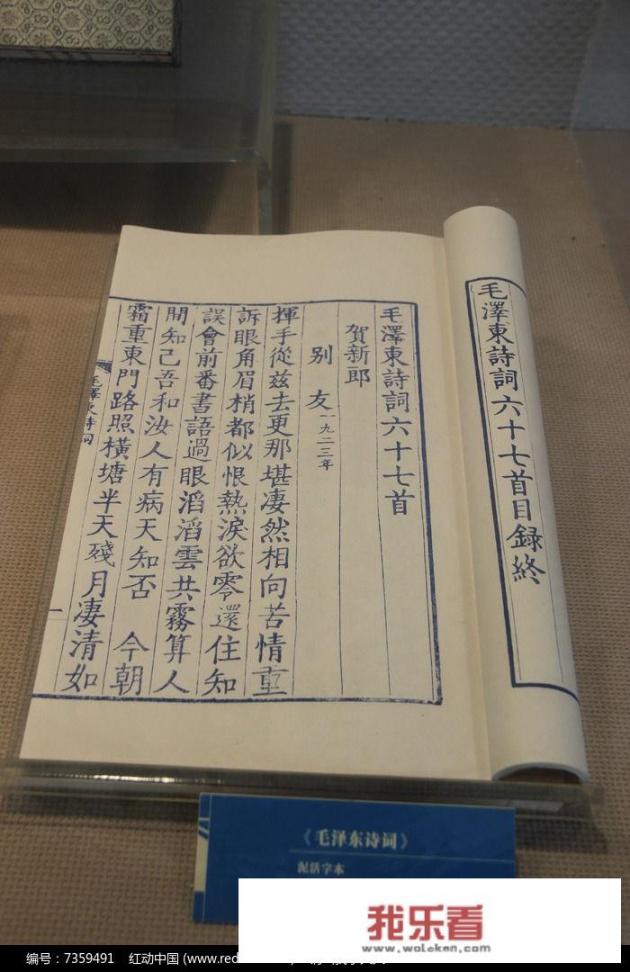 毛澤東詩詞六十七首目録終
毛澤東詩詞六十七首
賀新郎
别友 一九二三年
揮手從兹去更那堪凄然相向苦情重
訴眼角眉梢都似恨熱淚欲零還住知
誤會前番書語過眼滔滔雲共霧算人
間知己吾和汝人有病天知否　今朝
霜重東門路照橫塘半天殘月凄清如
毛澤東詩詞
一
《毛泽东诗词》
泥活字本
我乐看
www.woleken.com
编号：7359491 红动中国 (www.red